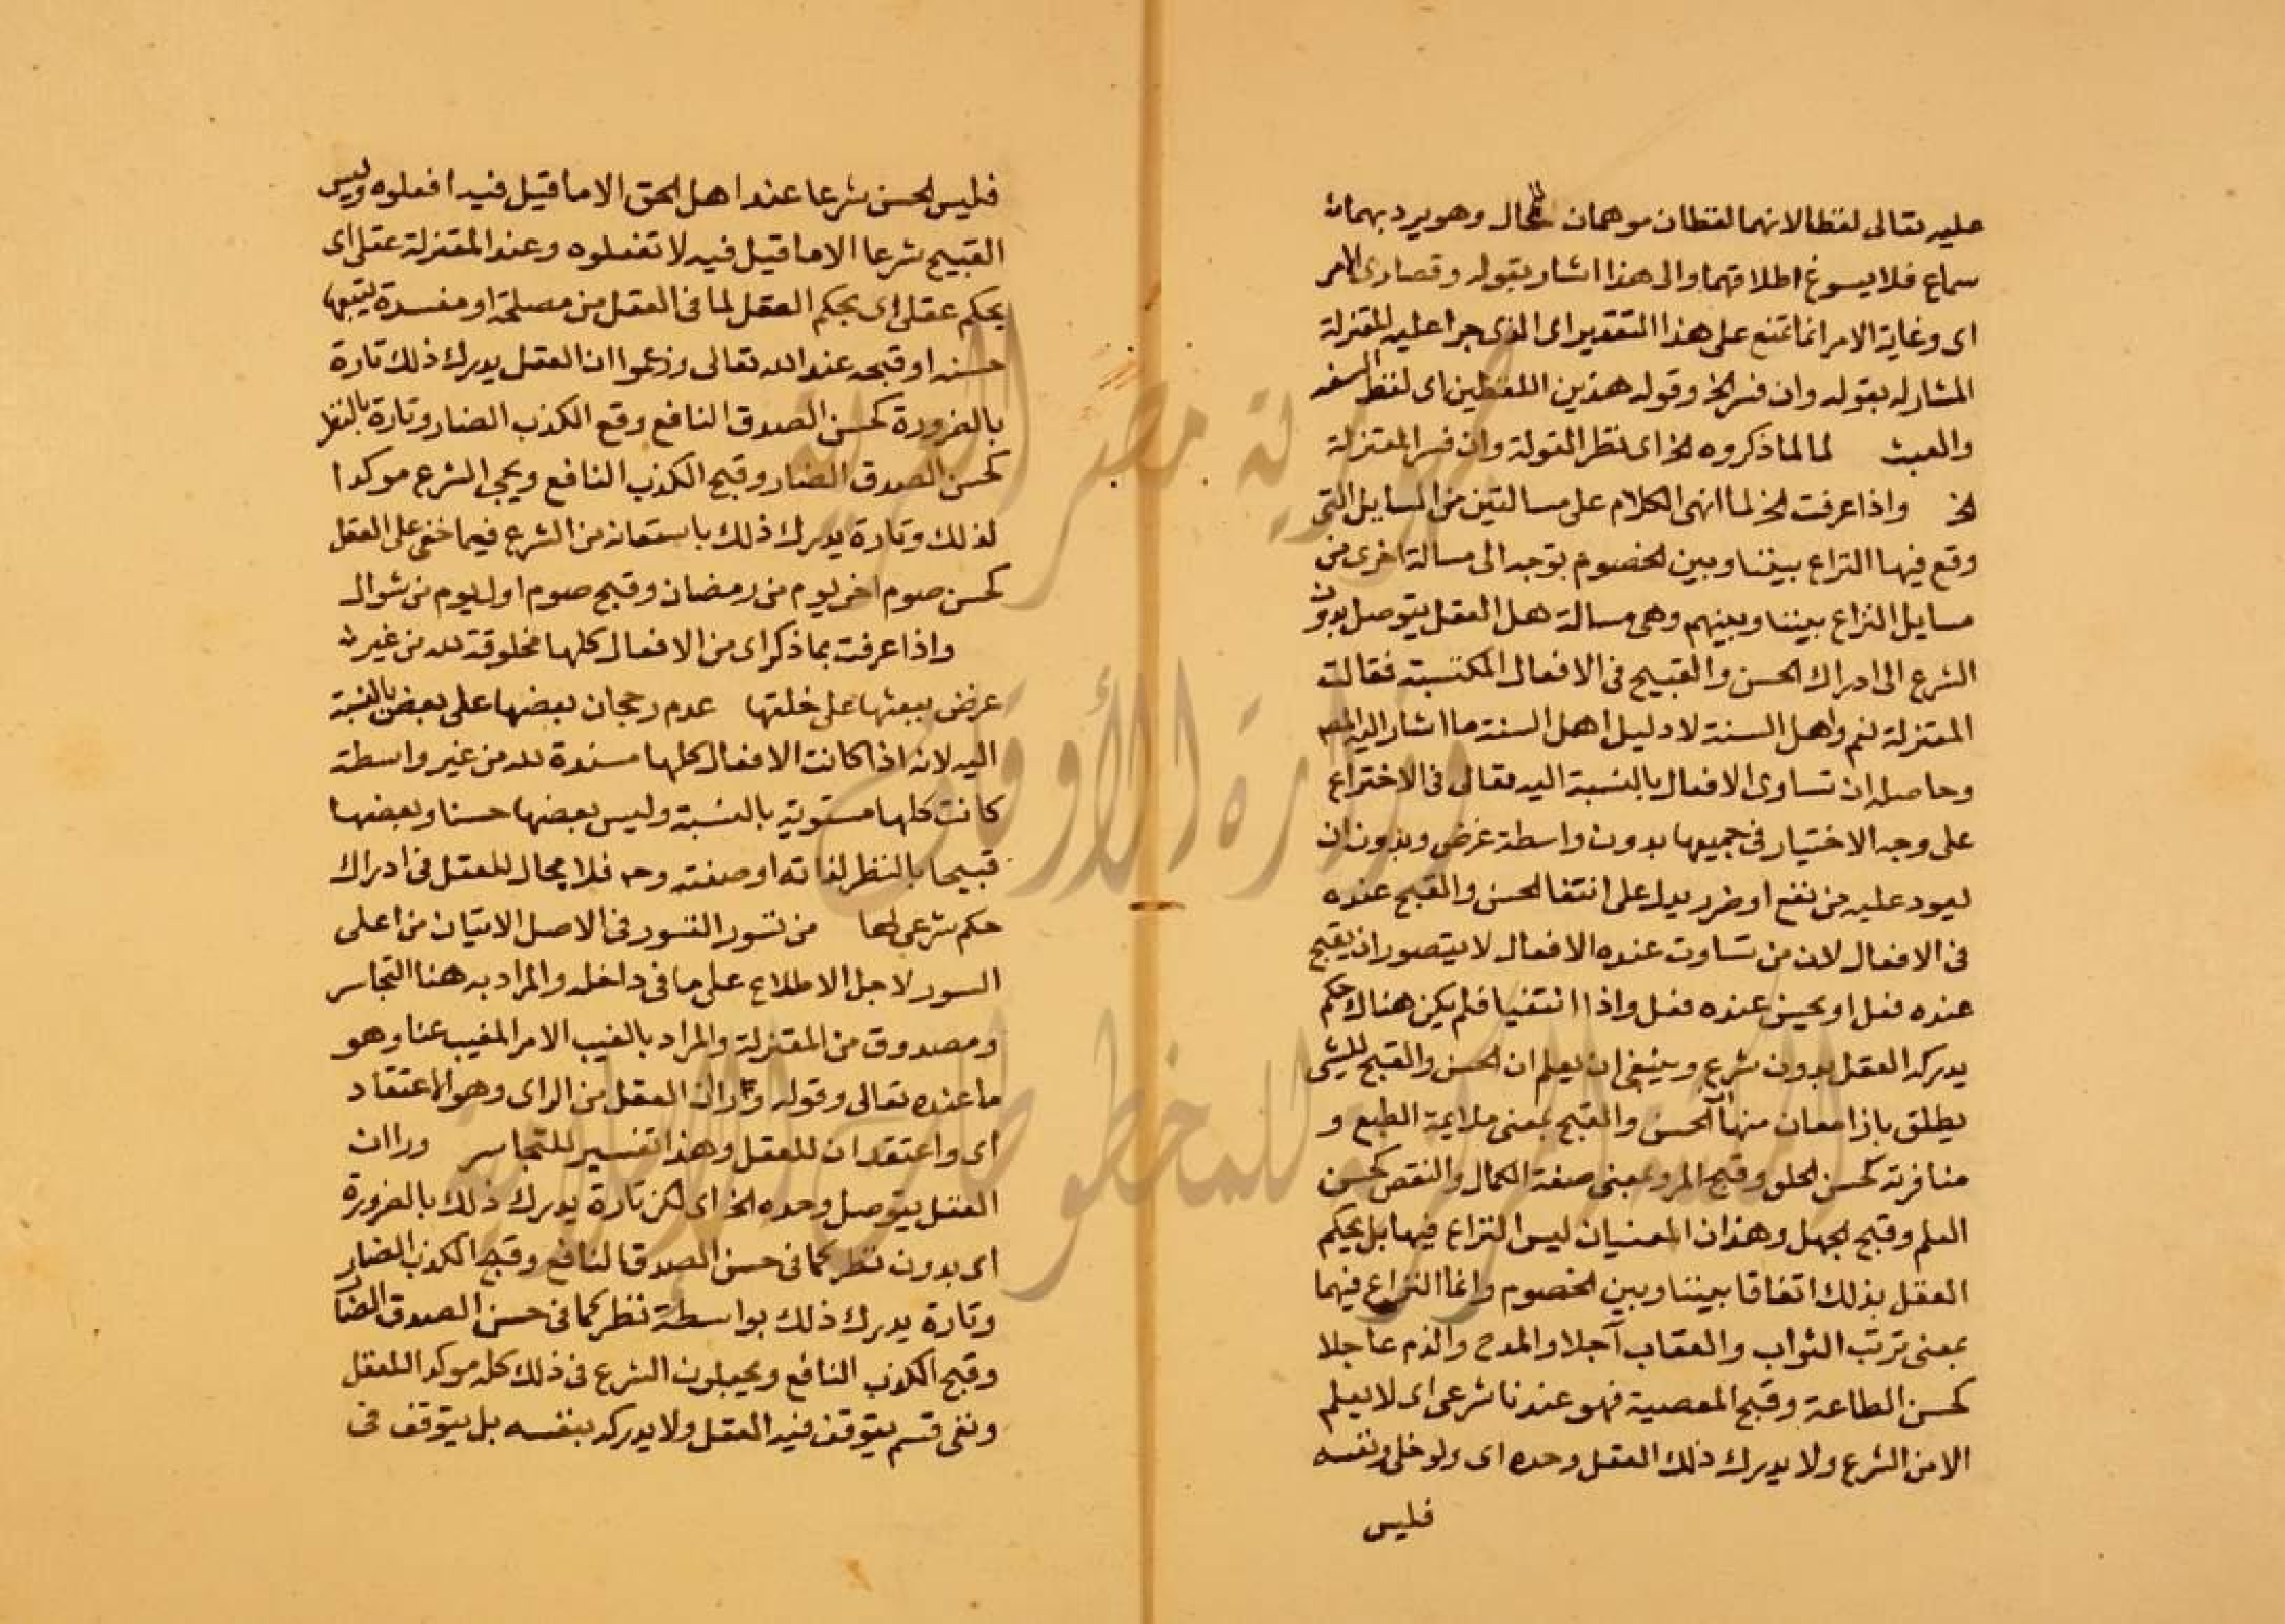 عليه تعالى لفظا لانهما لفظان موهمان للمحال وهو يرد بهما نه
سماع فلا يسوغ اطلاقهما والى هذا اشار بقوله وقصارى الامر
اى وغاية الامر انما تمنع على هذا التقدير اى الذى جرا عليه المعتزلة
المشار له بقوله وان فسر الخ وقوله هذين اللفظين اى لفظ السفه
والعبث لما لما ذكروه الخ اى نظر القولة وان فسر المعتزلة
الخ واذا عرفت الخ لما انهى الكلام على مسالتين من المسايل التى
وقع فيها النزاع بيننا وبين الخصوم توجه الى مسالة اخرى من
مسايل النزاع بيننا وبينهم وهى مسالة هل العقل يتوصل بدون
الشرع الى ادراك الحسن والقبيح فى الافعال المكتسبة فقالت
المعتزلة نعم واهل السنة لا دليل اهل السنة ما اشار اليه المص
وحاصله ان تساوى الافعال بالنسبة اليه تعالى فى الاختراع
على وجه الاختيار فى جميعها بدون واسطة غرض وبدون ان
ليعود عليه من نفع او ضرر يدل على انتفا الحسن والقبح عنده
فى الافعال لان من تساوت عنده الافعال لا يتصور ان يقبح
عنده فعل او يحسن عنده فعل واذا انتفيا فلم يكن هناك حكم
يدركه العقل بدون شرع وينبغى ان يعلم ان الحسن والقبح للشى
يطلق بازا معان منها الحسن والقبح بمعنى ملايمة الطبع و
منافرته كحسن الحلو وقبح المر وبمعنى صفة الكمال والنقص كحسن
العلم وقبح الجهل وهذان المعنيان ليس النزاع فيها بل يحكم
العقل بذلك اتفاقا بيننا وبين الخصوم وانما النزاع فيهما
بمعنى ترتب الثواب والعقاب آجلا والمدح والذم عاجلا
كحسن الطاعة وقبح المعصية فهو عندنا شرعى اى لا يعلم
الا من الشرع ولا يدرك ذلك العقل وحده اى ولو خلى ونفسه
فليس
فليس الحسن شرعا عند اهل الحق الا ما قيل فيه افعلوه وليس
القبيح شرعا الا ما قيل فيه لا تفعلوه وعند المعتزلة عقلى اى
يحكم عقلى اى يحكم العقل لما فى الفعل من مصلحة او مفسدة يتبعها
حسنه او قبحه عند الله تعالى وزعموا ان العقل يدرك ذلك تارة
بالضرورة كحسن الصدق النافع وقع الكذب الضار وتارة بالنظر
كحسن الصدق الضار وقبح الكذب النافع ويجى الشرع موكدا
لذلك وتارة يدرك ذلك باستعانه من الشرع فيما خفى على العقل
كحسن صوم اخر يوم من رمضان وقبح صوم اول يوم من شوال
واذا عرفت بما ذكر اى من الافعال كلها مخلوقة لله من غير
غرض يبعثها على خلقها عدم رجحان بعضها على بعض بالنسبة
اليه لانه اذا كانت الافعال كلها مسندة لله من غير واسطة
كانت كلها مستوية بالنسبة وليس بعضها حسنا وبعضها
قبيحا بالنظر لذاته او صفته وح فلا مجال للعقل فى ادراك
حكم شرعى لها من تسور التسور فى الاصل الاتيان من اعلى
السور لاجل الاطلاع على ما فى داخله والمراد به هنا التجاسر
ومصدوق من المعتزلة والمراد بالغيب الامر المغيب عنا وهو
ما عنده تعالى وقوله وراى ان العقل من الراى وهو الاعتقاد
اى واعتقد ان للعقل وهذا تفسير للتجاسر وراان
العقل يتوصل وحده الخ اى لكن تارة يدرك ذلك بالضرورة
اى بدون نظر كما فى حسن الصدق النافع وقبح الكذب الضار
وتارة يدرك ذلك بواسطة نظر كما فى حسن الصدق الضار
وقبح الكذب النافع ويجعلون الشرع فى ذلك كله موكدا للعقل
ونفى قسم يتوقف فيه العقل ولا يدركه بنفسه بل يتوقف فى
جمهورية مصر العربية
وزارة الأوقاف
المكتبة المركزية للمخطوطات الإسلامية